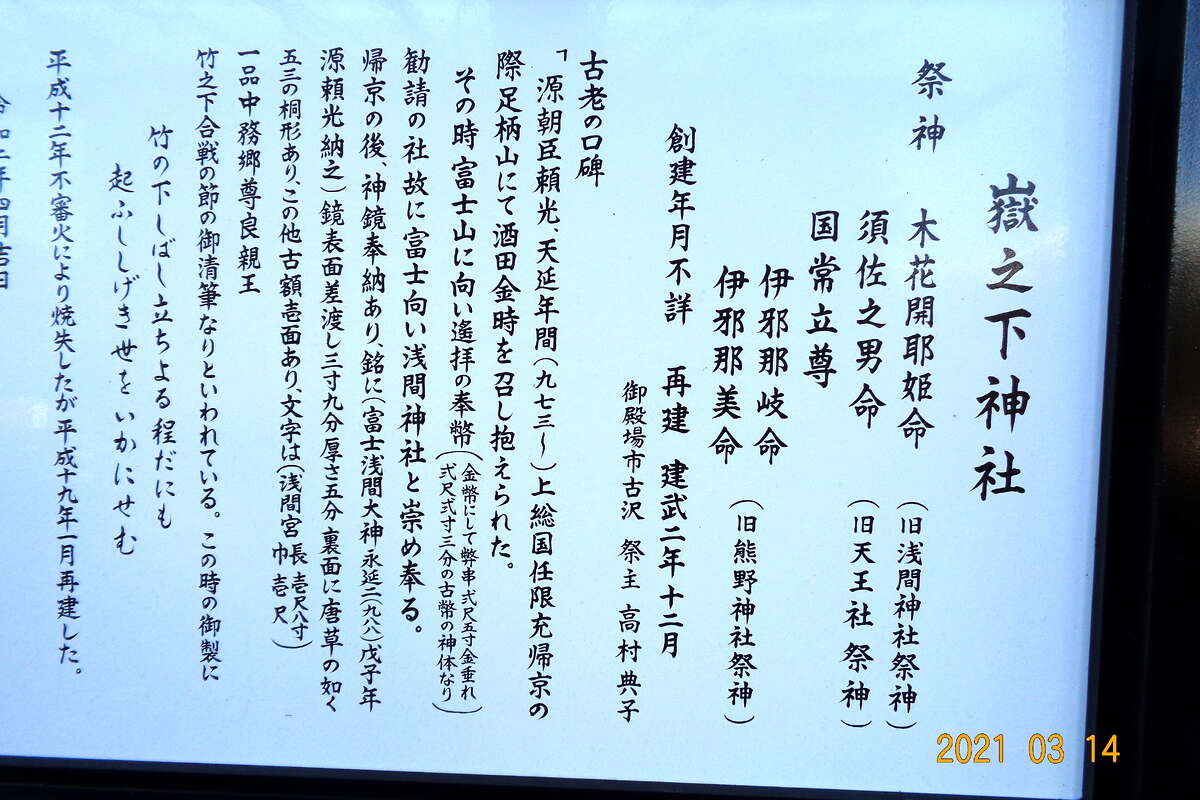 嶽之下神社
祭神　木花開耶姫命　（旧浅間神社祭神）
須佐之男命　（旧天王社祭神）
国常立尊
伊邪那岐命
伊邪那美命　（旧熊野神社祭神）
創建年月不詳　再建　建武二年十二月
御殿場市古沢　祭主　高村典子
古老の口碑
「源朝臣頼光、天延年間（九七三〜）上総国任限充帰京の
際足柄山にて酒田金時を召し抱えられた。
その時富士山に向い遙拝の奉幣（金幣にして弊串弍尺五寸金垂れ
弍尺弍寸三分の古幣の神体なり）
勧請の社故に富士向い浅間神社と崇め奉る。
帰京の後、神鏡奉納あり、銘に（富士浅間大神永延二（九八八）戊子年
源頼光納之）鏡表面差渡し三寸九分厚さ五分裏面に唐草の如く
五三の桐形あり、この他古額壱面あり、文字は（浅間宮 長壱尺八寸
巾壱尺）
一品中務郷尊良親王
竹之下合戦の節の御清筆なりといわれている。この時の御製に
竹の下しばし立ちよる程だにも
起ふししげき世をいかにせむ
平成十二年不審火により焼失したが平成十九年一月再建した。
令和二年四月吉日
2021 03 14